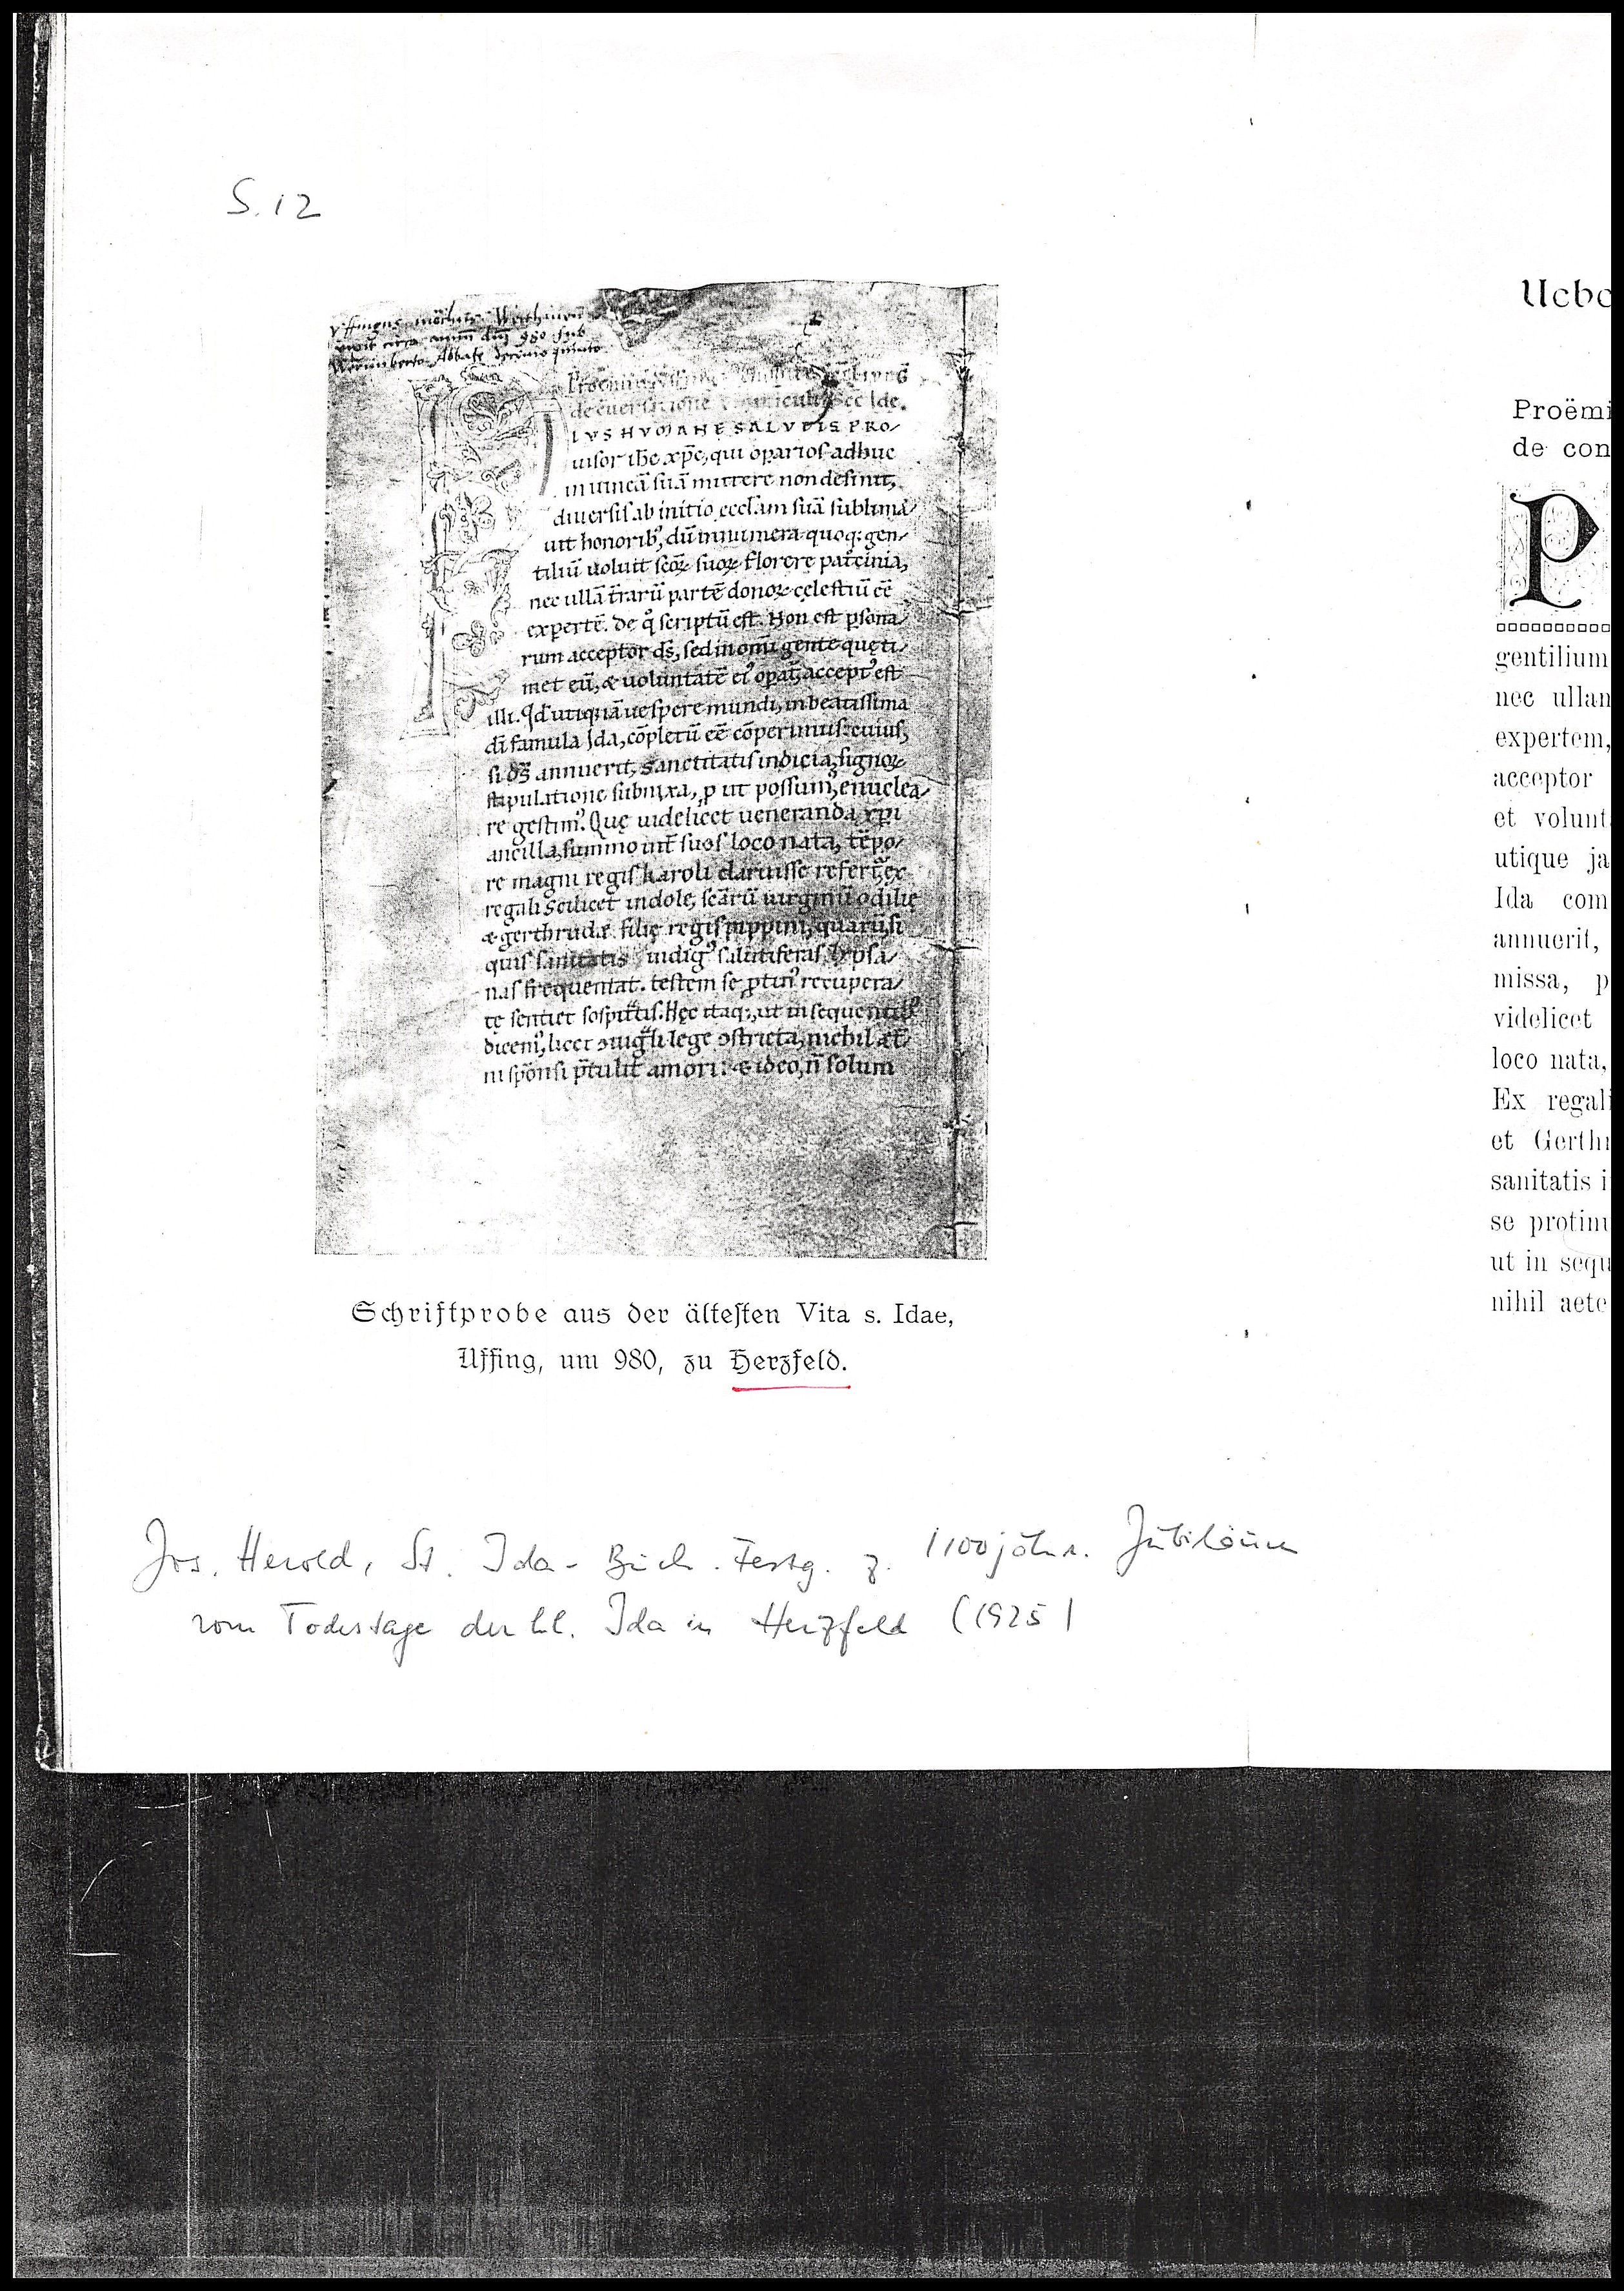 S. 12
Uffingus mo̅chus Werthinen̅
vixit circa annum dn̅j 980 sub
Werinberto Abbate decimo quinto
de c̅uersatione Sc̅e Ide.
IVS HVMANE SALVTIS PRO/
uisor ih̅c xp̅c, qui op̱arios adhuc
in uineā suā mittere non desinit,
diuersis ab initio eccl̅am suā sublima/
uit honorib;, dū innumera quoq; gen/
tiliū uoluit sc̅oꝝ suoꝝ florere pat̅cinia,
nec ullā t̅rarū partē donoꝝ cęlestiū ee̅
expertē. De q̊ scriptū est. Non est p̱sona/
rum acceptor d̅s, sed in om̅i gente quę ti/
met eū, & uoluntatē ei᾽ op̱at᷑, accept᾽ est
illi. Qd̅ utiq; iā uespere mundi, in beatissima
di̅ famula Ida, cōpletū ee̅ cōperimus: cuius,
si d̅s annuerit, sanctitatis indicia, signoꝝ
stipulatione subnixa, ꝓ ut possum᾽, enuclea/
re gestim᾽. Quę uidelicet ueneranda xp̅i
ancilla, summo int̅ suos loco nata, tēpo/
re magni regis karoli claruisse refert᷑, ex
regali scilicet indole, sc̅arū uirginū odilię
& gerthrudę filię regis pippini, quarū, si
quis sanitatis indig᾽ salutiferas lypsa/
nas frequentat. testem se ꝓtin᾽ recupera/
tę sentiet sospit̅tis. Hęc itaq;, ut in sequentib;
dicem᾽, licet ↄiug̅li lege ↄstricta, nichil æt̅/
ni spōnsi p̅tulit amori: & ideo, n̅ solum
Schriftprobe aus der ältesten Vita s. Idae,
Uffing, um 980, zu Herzfeld.
Jos. Herold, St. Ida-Buch. Festg. z. 1100jähr. Jubiläum
vom Todestage der hl. Ida in Herzfeld (1925)
Uebe
Proëmi
de con
P
gentilium
nec ullan
expertem,
acceptor
et volunt
utique ja
Ida com
annuerit,
missa, p
videlicet
loco nata,
Ex regali
et Gerthr
sanitatis i
se protinu
ut in sequ
nihil aete